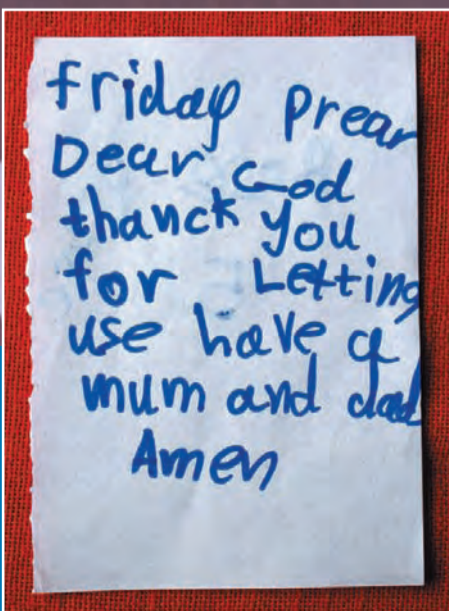 friday prear
Dear God
thanck you
for Letting
use have a
mum and dad
Amen